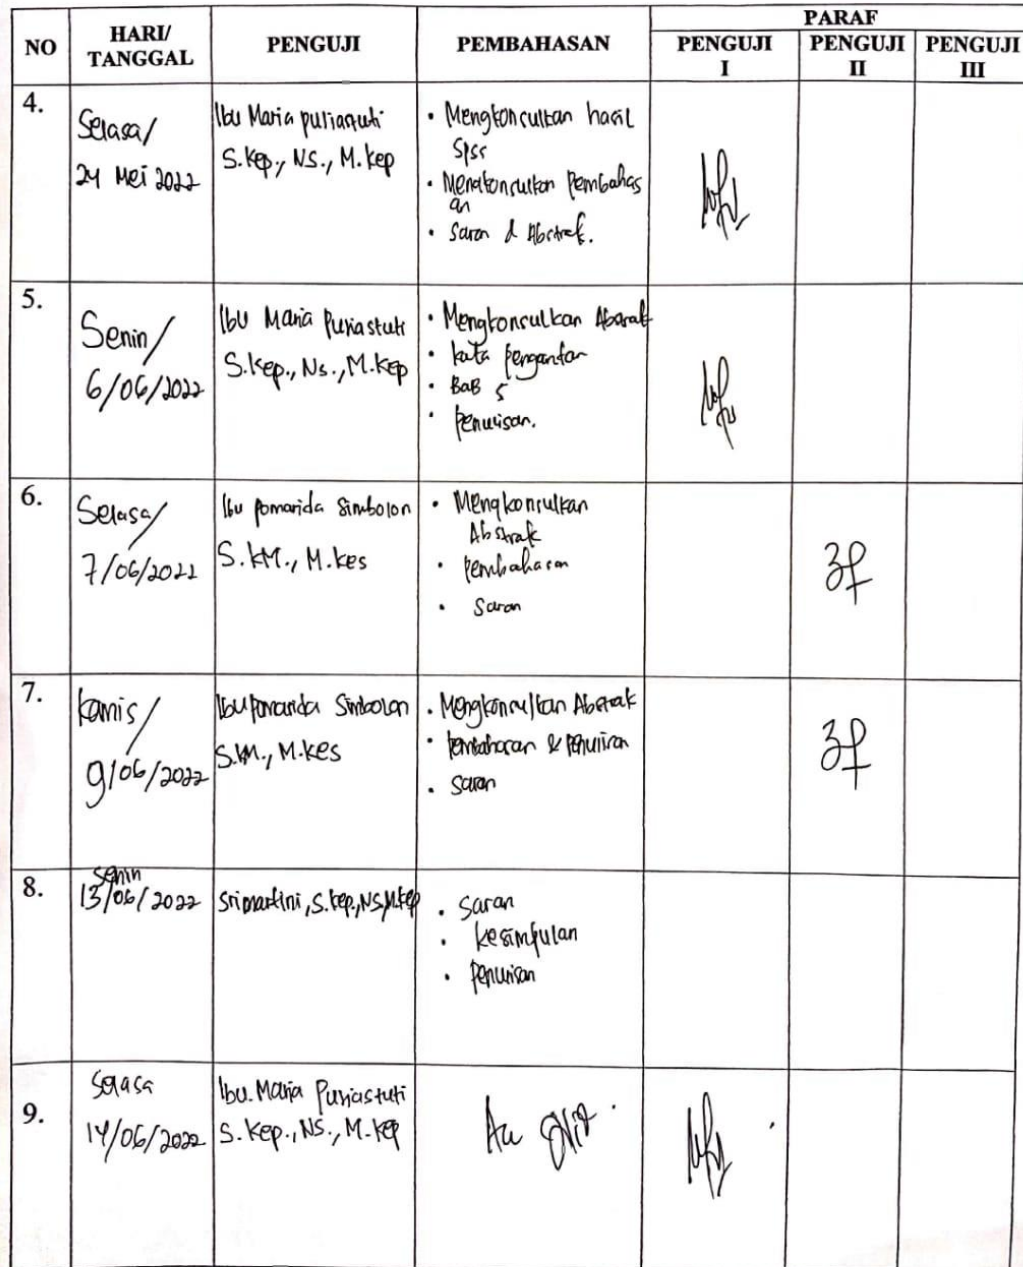 NO HARI/ TANGGAL PENGUJI PEMBAHASAN PARAF
PENGUJI I PENGUJI II PENGUJI III
4.
Selasa/
24 Mei 2022
Ibu Maria pujiastuti
S.Kep., NS., M.kep
• Mengkonsultan hasil
Spss
• Mengkonsultan Pembahas
an
• Saran & Abstrak.
5.
Senin/
6/06/2022
Ibu Maria Pujiastuti
S.Kep., Ns., M.Kep
• Mengkonsulkan Abstrak
• kata pengantar
• BaB 5
• Penulisan.
6.
Selasa/
7/06/2022
Ibu pomarida Simbolon
S.KM., M.kes
• Mengkonsulkan
Abstrak
• Pembahasan
• Saran
7.
Kamis/
9/06/2022
Ibu pomarida Simbolon
S.KM., M.kes
• Mengkonsulkan Abstrak
• Pembahasan & Penulisan
• Saran
8.
Senin
13/06/2022
Srimartini, S.kep., NS, M.kep
• Saran
• Kesimpulan
• Penulisan
9.
Selasa
14/06/2022
Ibu. Maria Pujiastuti
S.Kep., NS., M.Kep